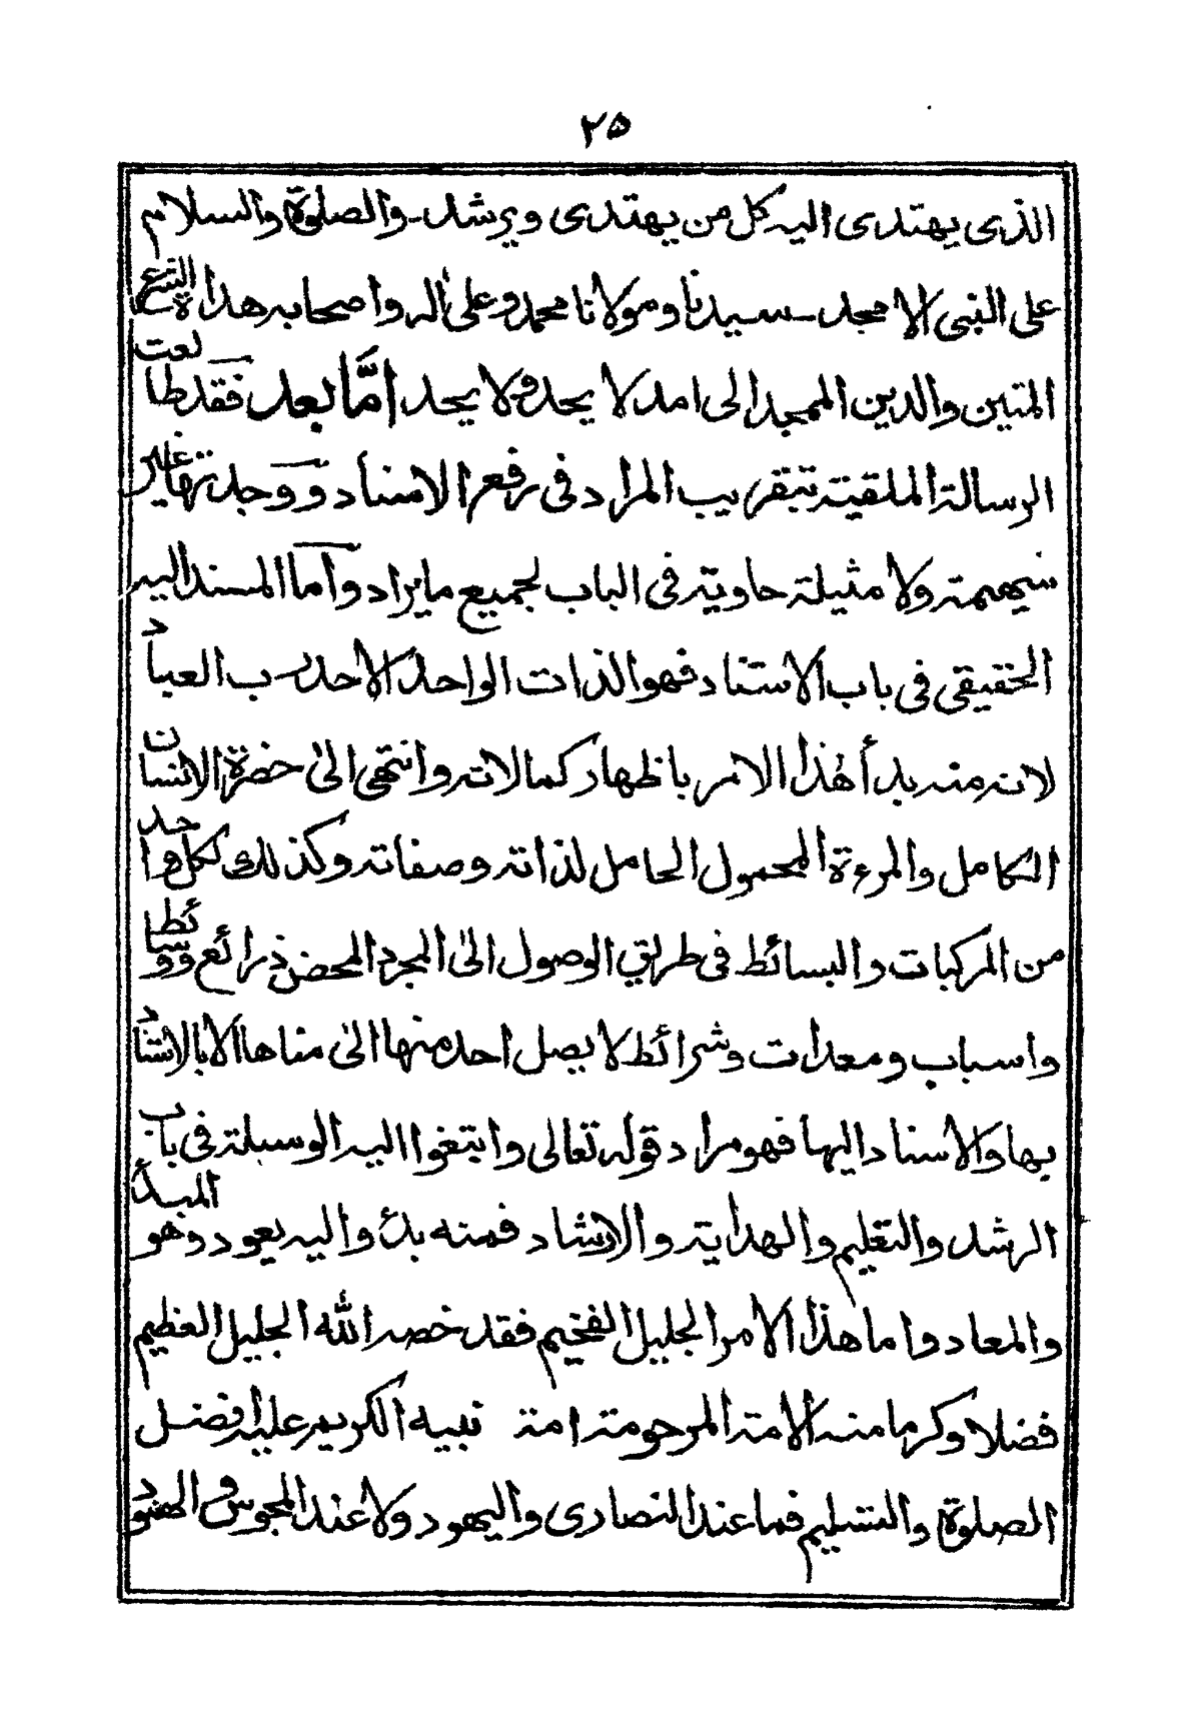 ۲۵
الذی یهتدی الیه کل من یهتدی ویرشد۔ والصلوٰة والسلام
علی النبی الامجد۔ سیدنا ومولانا محمد وعلیٰ اٰله واصحابه هداة الشرع
المتین والدین الممجد الی امد لا یحد ولا یحد امّا بعد فقد طالعت
الرسالة الملقیة بتقریب المراد فی رفع الاسناد و وجدتها غیر
سهیمة ولا مثیلة حاویة فی الباب لجمیع ما یراد واما المسند الیه
الحقیقی فی باب الاستناد فهو الذات الواحد الاحد رب العباد
لانه منه بدأ هٰذا الامر باظهار کمالاته وانتهی الیٰ حضرة الانسان
الکامل والمرءة المحمول الحامل لذاته وصفاته وکذلك لکل واحد
من المرکبات والبسائط فی طریق الوصول الیٰ المجرد المحض ذرائع ووسائط
واسباب ومعدات وشرائط لا یصل احد منها الیٰ مناها الا بالاستناد
بها والاسناد الیها فهو مراد قوله تعالی وابتغوا الیه الوسیلة فی باب
الرشد والتعلیم والهدایة والارشاد فمنه بدأ والیه یعود وهو المبدأ
والمعاد واما هذا الامر الجلیل الفخیم فقد خصه الله الجلیل العظیم
فضلا وکرما منه الامة المرحومة امة نبیه الکریم علیه افضل
الصلوٰة والتسلیم فما عند النصاری والیهود ولا عند المجوس والهنود